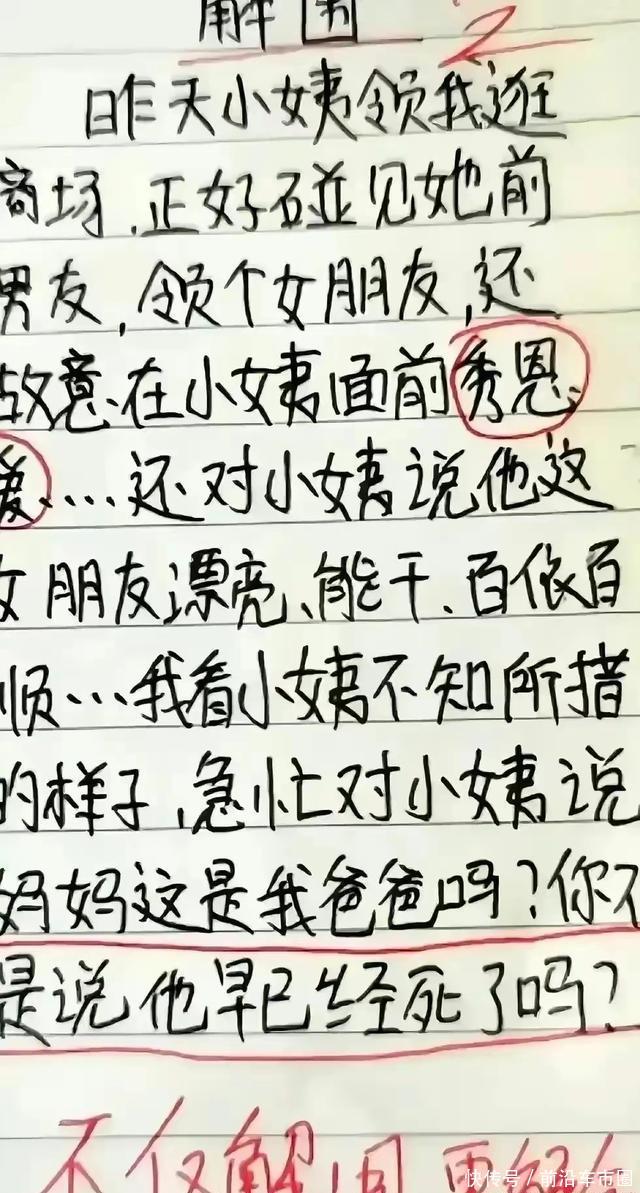 解围 2
昨天小姨领我逛
商场,正好碰见她前
男友,领个女朋友,还
故意在小姨面前秀恩
爱…还对小姨说他这
女朋友漂亮、能干、百依百
顺…我看小姨不知所措
的样子,急忙对小姨说
妈妈这是我爸爸吗?你不
是说他早已经死了吗?
不仅解围
快传号/前沿车市圈